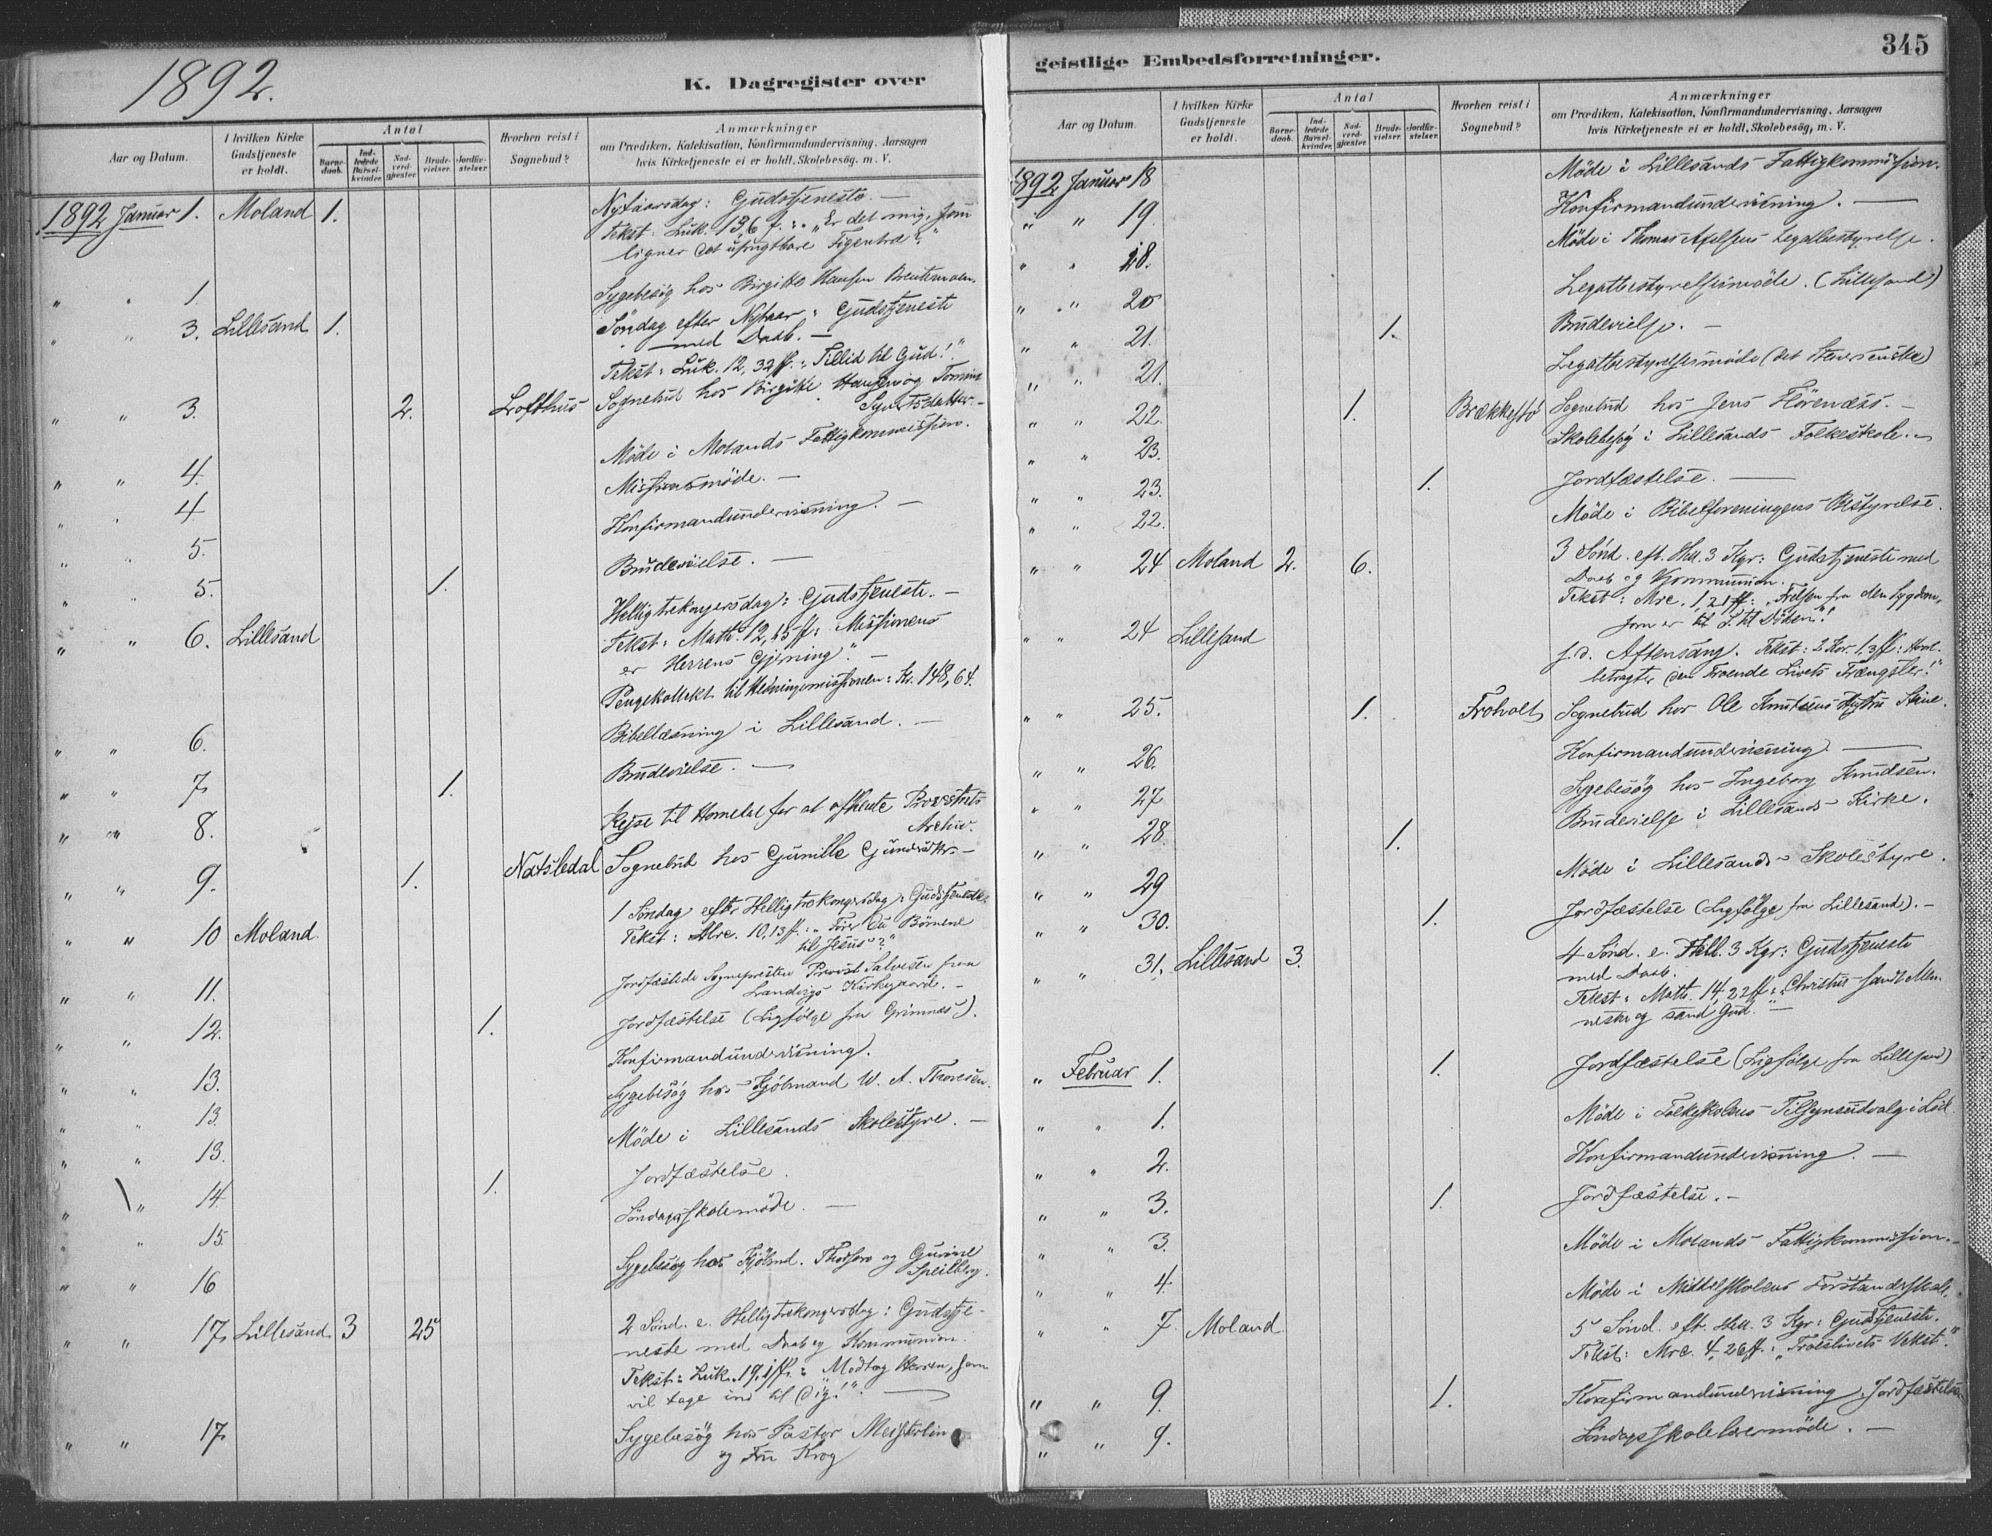 1892.
K. Dagregister over
Aar og Datum.
I hvilken Kirke Gudstjeneste er holdt.
Antal
Barnedaab.
Indledede Barselkvinder.
Nadverdgjæster
Brudevielser.
Jordfæstelser
Hvorhen reist i Sognebud?
Anmærkninger
om Prædiken, Katekisation, Konfirmandundervisning, Aarsagen
hvis Kirketjeneste ei er holdt, Skolebesög, m. V.
1892 Januar 1. Moland 1. Nytaarsdag: Gudstjeneste. —
Tekst: Luk. 13,6 f.: „Er det mig, som
ligner det ufrugtbare Figentræ?"
" " 1. Sygebesög hos Birgitte Hansen
" " 3. Lillesand 1. Söndag efter Nytaar: Gudstjeneste
med Daab. —
Tekst: Luk. 12, 32 ff.: „Tillid til Gud!"
" " 3. 2. Lofthus Sognebud hos Birgitte Hansen og
" " 4. Möde i Molands Fattigkommission.
" " 4. Missionsmöde. —
" " 5. Konfirmandundervisning. —
" " 5. 1. Brudevielse. —
" " 6. Lillesand Helligtrekongersdag: Gudstjeneste. —
Tekst: Matth. 12, ff: Missionens
er Herrens Gjerning". —
Pengekollekt til Hedningemissionen: Kr. 148,64.
" " 6. Bibellæsning i Lillesand. —
" " 7. 1. Brudevielse. —
" " 8. Rejse til Homedal for at afhente Provstiets
Archiv.
" " 9. 1. Natsledal Sognebud hos Gunille —
" " 10 Moland 1 Söndag efter Helligtrekongersdag: Gudstjeneste.
Tekst: Mrc. 10,13 ff.: „Förer Du Börnene
til Jesus?"
" " 11. Jordfæstede Sognepresten Provst Salvesen fra
Landvigs Kirkegaard. —
" " 12. 1. Jordfæstelse (Ligfölge fra Grimnæs).
" " 13. Konfirmandundervisning.
" " 13. Sygebesög hos Kjöbmand W. A. Thoresen.
" " 13. Möde i Lillesands Skolestyre. —
" " 14 1. Jordfæstelse.
" " 15. Söndagsskolemöde. —
" " 16 Sygebesög hos Kjöbmd. og Gurine
Speilberg.
" " 17. Lillesand 3 25 2 Sönd. e. Helligtrekongersdag: Gudstje-
neste med Daab og Kommunion.
Tekst: Luk. 19,1 ff.: „Modtag Herren, som
vil tage ind til Dig!" —
" " 17. Sygebesög hos Pastor Meisterlin
og Fru Krog
geistlige Embedsforretninger.
345
Aar og Datum.
I hvilken Kirke Gudstjeneste er holdt.
Antal
Barnedaab.
Indledede Barselkvinder.
Nadverdgjæster.
Brudevielser.
Jordfæstelser.
Hvorhen reist i Sognebud?
Anmærkninger
om Prædiken, Katekisation, Konfirmandundervisning, Aarsagen
hvis Kirketjeneste ei er holdt, Skolebesög, m. V.
1892 Januar 18 Möde i Lillesands Fattigkommission.
" " 19. Konfirmandundervisning. —
" " 18. Möde i Thomas Axelsens Legatbestyrelse.
" " 20 Legatbestyrelsesmöde. (Lillesand)
" " 21. 1. Brudevielse. —
" " 21. Legatbestyrelsesmöde (det
" " 22. 1. Brækkestö Sognebud hos Jens Flörenæss. —
" " 23. Skolebesög i Lillesands Folkeskole. —
" " 23. 1. Jordfæstelse. —
" " 22. Möde i Bibelforeningens Bestyrelse.
" " 24 Moland 2. 6. 3 Sönd. eft. Hell. 3 Kgr: Gudstjeneste med
Daab og Kommunion.
Tekst: Mrc. 1, 21 ff: „Frelsen fra den Sygdom,
som er til Döden"!
" " 24 Lillesand s.d. Aftensang. Tekst: 2 Kor. 1,3 ff: Hvad
betragter den Troende Livets Trængsler!"
" " 25. 1. Froholt Sognebud hos Ole Knutsens Hustru
" " 26. Konfirmandundervisning. —
" " 27 Sygebesög hos Ingeborg Knudsen.
" " 28. 1. Brudevielse i Lillesands Kirke.
" " 29 Möde i Lillesands Skolestyre.
" " 30. 1. Jordfæstelse (Ligfölge fra Lillesand). —
" " 31. Lillesand 3. 4 Sönd. e. Hell. 3 Kgr: Gudstjeneste
med Daab.
Tekst: Matt. 14, 22 ff: „Christus sandt Men-
neske og sand Gud." —
" Februar 1. 1. Jordfæstelse (Ligfölge fra Lillesand)
" " 1. Möde i Folkeskolens Tilsynsudvalg i
" " 2. Konfirmandundervisning. —
" " 3. 1. Jordfæstelse. —
" " 3. Möde i Molands Fattigkommission. —
" " 4. Möde i Middelskolens Forstanderskab.
" " 7 Moland 5 Sönd. eft. Hell. 3 Kgr: Gudstjeneste.
Tekst: Mrc. 4, 26 ff: „Troeslivets Vekst".
" " 9. 1. Konfirmandundervisning. Jordfæstelse
" " 9. Söndagsskolelærermöde. —